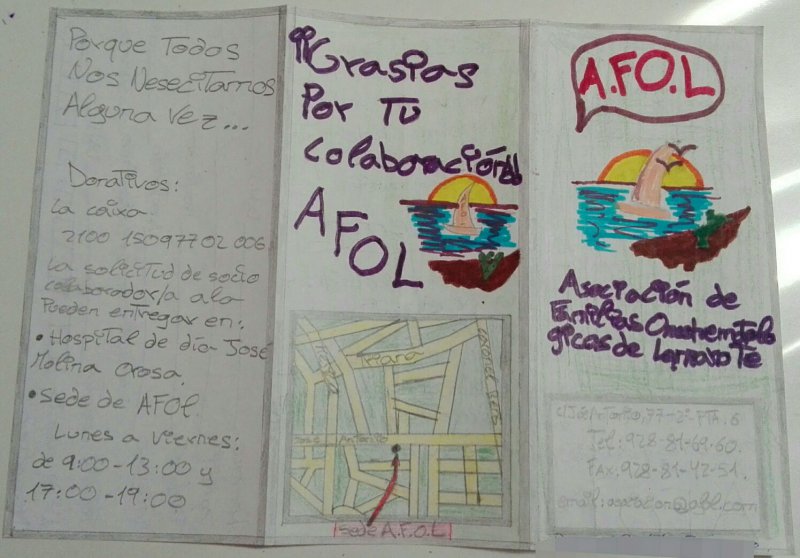 Porque Todos
Nos Nesecitamos
Alguna vez...
Donativos:
La caixa
2100 1509770​2 006
La solicitud de socio
colaborador/a a la
Pueden entregar en:
• Hospital de día José
Molina Orosa.
• Sede de AFOL
Lunes a viernes:
de 9:00-13:00 y
17:00-19:00
¡¡Grasias
Por Tu
colaboración!!
AFOL
José Antonio
sede A.F.O.L
A.FO.L
Asociación de
Familias Oncohematolo
gicas de Lanzarote
C/José Antonio, 77-2º-PTA. 6
Tel: 928-81-69-60.
FAX: 928-81-42-51.